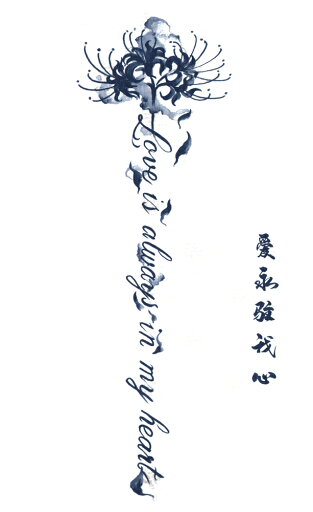 Love is always in my heart
爱永驻我心